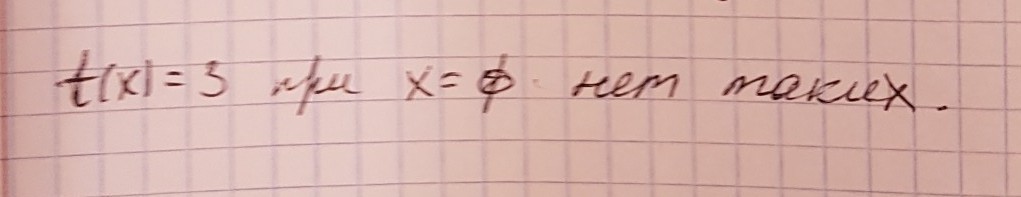 t(x) = 3 при x = ϕ нет таких.